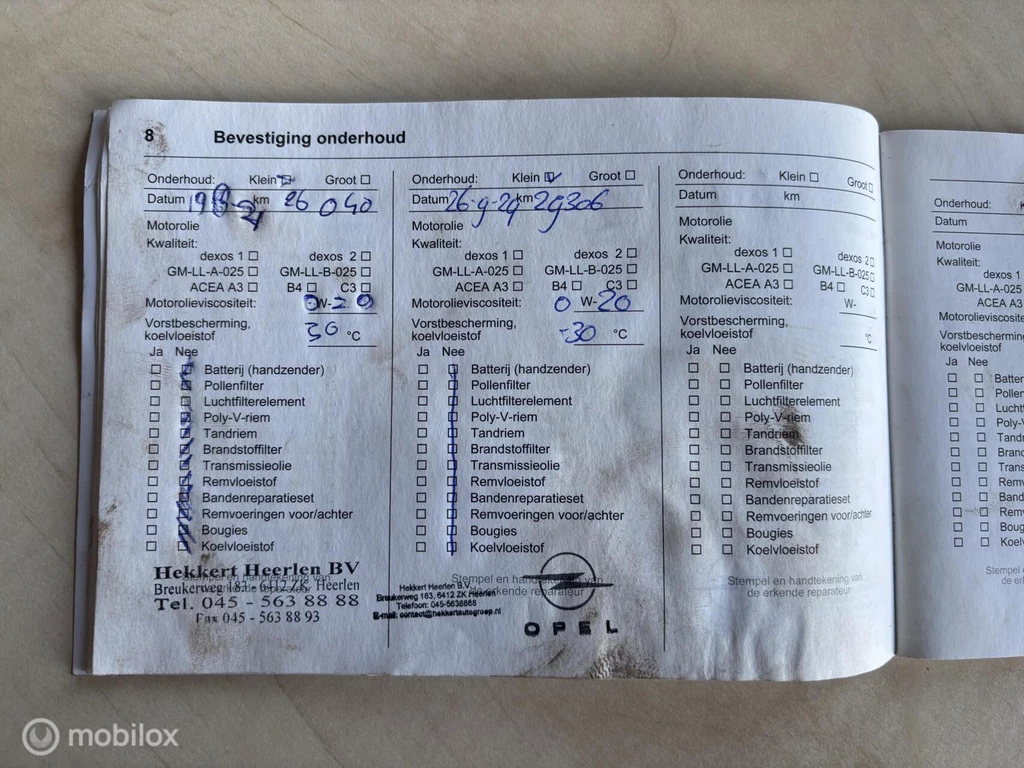 8 Bevestiging onderhoud
Onderhoud: Klein Groot
Datum km 26 040
Motorolie
Kwaliteit:
dexos 1 dexos 2
GM-LL-A-025 GM-LL-B-025
ACEA A3 B4 C3
Motorolieviscositeit: 0 W-20
Vorstbescherming,
koelvloeistof 30 °C
Ja Nee
Batterij (handzender)
Pollenfilter
Luchtfilterelement
Poly-V-riem
Tandriem
Brandstoffilter
Transmissieolie
Remvloeistof
Bandenreparatieset
Remvoeringen voor/achter
Bougies
Koelvloeistof
Stempel en handtekening van
Hekkert Heerlen BV
Breukerweg 183 - 6412 ZK Heerlen
Tel. 045 - 563 88 88
Fax 045 - 563 88 93
Onderhoud: Klein Groot
Datum 26-9-29 km 29306
Motorolie
Kwaliteit:
dexos 1 dexos 2
GM-LL-A-025 GM-LL-B-025
ACEA A3 B4 C3
Motorolieviscositeit: 0 W-20
Vorstbescherming,
koelvloeistof -30 °C
Ja Nee
Batterij (handzender)
Pollenfilter
Luchtfilterelement
Poly-V-riem
Tandriem
Brandstoffilter
Transmissieolie
Remvloeistof
Bandenreparatieset
Remvoeringen voor/achter
Bougies
Koelvloeistof
Stempel en handtekening van
de erkende reparateur
Hekkert Heerlen B.V.
Breukerweg 183, 6412 ZK Heerlen
Telefoon: 045-5638888
E-mail: contact@hekkertautogroep.nl
OPEL
Onderhoud: Klein Groot
Datum km
Motorolie
Kwaliteit:
dexos 1 dexos 2
GM-LL-A-025 GM-LL-B-025
ACEA A3 B4 C3
Motorolieviscositeit: W-
Vorstbescherming,
koelvloeistof °C
Ja Nee
Batterij (handzender)
Pollenfilter
Luchtfilterelement
Poly-V-riem
Tandriem
Brandstoffilter
Transmissieolie
Remvloeistof
Bandenreparatieset
Remvoeringen voor/achter
Bougies
Koelvloeistof
Stempel en handtekening van
de erkende reparateur
Onderhoud:
Datum
Motorolie
Kwaliteit:
dexos 1
GM-LL-A-025
ACEA A3
Motorolieviscosite
Vorstbescherming
koelvloeistof
Ja Nee
Batter
Pollen
Lucht
Poly-V
Tandri
Brand
Trans
Remv
Band
Remv
Boug
Koelv
Ste
mobilox